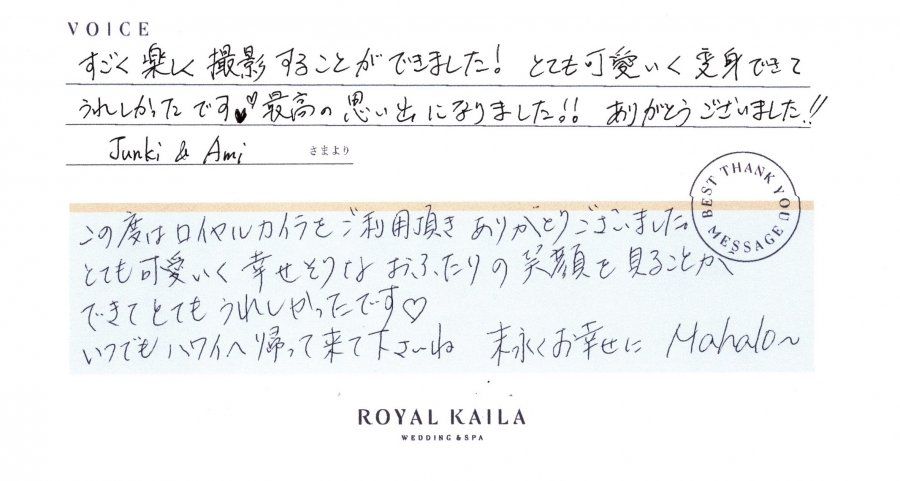 VOICE
すごく楽しく撮影することができました! とても可愛いく変身できて
うれしかったです♥♡最高の思い出になりました!! ありがとうございました!!
Junki & Ami さまより
BEST THANK YOU MESSAGE
この度はロイヤルカイラをご利用頂きありがとうございました。
とても可愛いく幸せそうなおふたりの笑顔を見ることが
できてとてもうれしかったです♡
いつでもハワイへ帰って来て下さいね 末永くお幸せに Mahalo〜
ROYAL KAILA
WEDDING & SPA